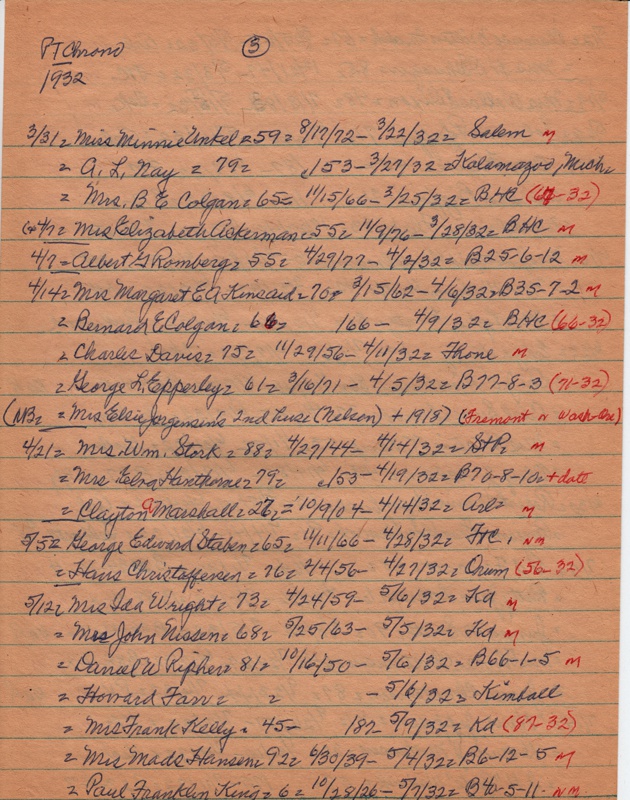 PT Chrono (3)
1932
3/31 = Miss Minnie Unkel = 59 = 8/17/72 - 3/22/32 = Salem M
= A. L. Nay = 79 = c/53 - 3/27/32 = Kalamazoo, Mich =
= Mrs. B E Colgan = 65 = 11/15/66 - 3/25/32 = BHC (67-32)
4/7 = Mrs Elizabeth Ackerman = 55 = 11/9/76 - 3/28/32 = BHC M
4/7 = Albert G Romberg = 55 = 4/29/77 - 4/2/32 = B25-6-12 M
4/14 = Mrs Margaret E A Kinsaid = 70 = 3/15/62 - 4/6/32 = B35-7-2 M
= Bernard E Colgan = 66 = 166 - 4/9/32 = BHC (66-32)
= Charles Davis = 75 = 11/29/56 - 4/11/32 = Fhone M
= George L. Epperley = 61 = 3/16/71 - 4/5/32 = B77-8-3 (71-32)
(NB = = Mrs Elsie Jorgensen's 2nd huse (Nelson) + 1918) (Fremont n Wash-One)
4/21 = Mrs. Wm. Stork = 88 = 4/27/44 - 4/14/32 = StP = M
= Mrs Elva Hawthorne = 79 = c/53 - 4/19/32 = B70-8-10 = + date
= Clayton a Marshall = 27 = 10/9/04 - 4/14/32 = Arl = M
5/5 = George Edward Staben = 65 = 11/11/66 - 4/28/32 = FtC, NM
= Hans Christoffersen = 76 = 2/4/56 - 4/27/32 = Orum (56-32)
5/12 = Mrs Ida Wright = 73 = 4/24/59 - 5/6/32 = Kd M
= Mrs John Nissen = 68 = 5/25/63 - 5/5/32 = Kd M
= Daniel W Ripher = 81 = 10/16/50 - 5/6/32 = B66-1-5 M
= Howard Farr = = - 5/6/32 = Kimball
= Mrs Frank Kelly = 45 - 187 - 5/9/32 = Kd (87-32)
= Mrs Mads Hansen = 92 = 6/30/39 - 5/4/32 = B6-12-5 M
= Paul Franklin King = 6 = 10/28/26 - 5/7/32 = B40-5-11 - NM